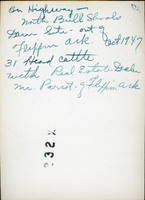 On Highway —
North Bull Shoals
Dam Site - out of
Flippin Ark. Oct 1947
31 Head cattle
with Real Estate Dealer
Mr. Parrot - of Flippin Ark
232